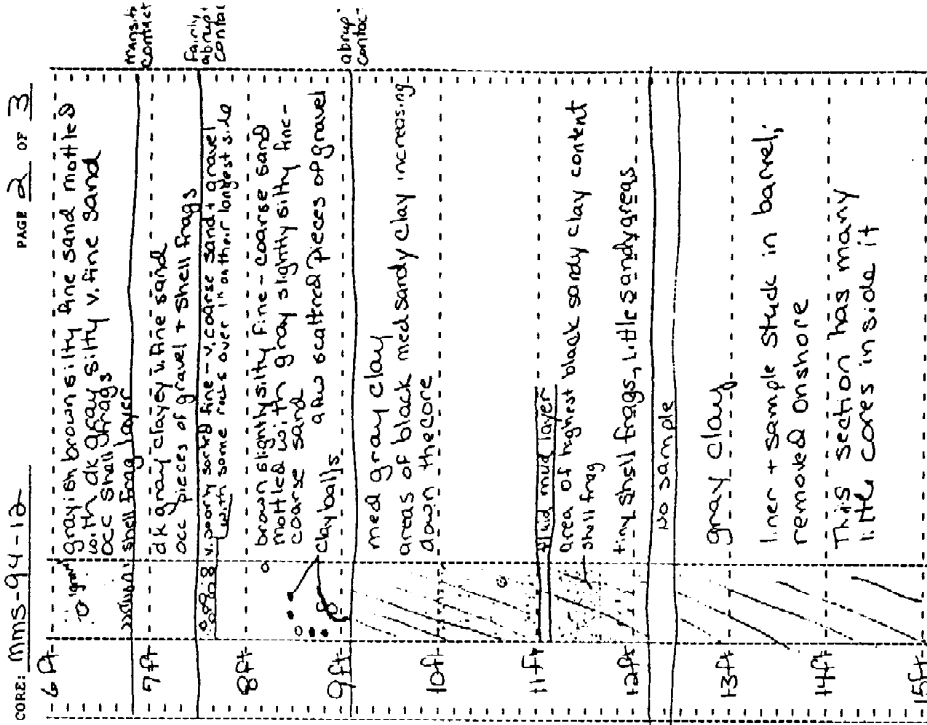 CORE: mms-94-12
PAGE 2 OF 3
6 ft
grayish brown silty fine sand mottled
with dk gray silty v. fine sand
occ shell frags
shell frag layer
contact
7 ft
dk gray clayey v. fine sand
occ pieces of gravel + shell frags
Fairly
abrupt
v. poorly sorted fine - v. coarse sand + gravel
with some rocks over 1" on their longest side
8 ft
brown slightly silty fine - coarse sand
mottled with gray slightly silty fine -
coarse sand
a few scattered pieces of gravel
clay balls
9 ft
abrupt
med gray clay
areas of black med sandy clay increasing
down the core
10 ft
11 ft
fluid mud layer
area of highest black sandy clay content
shell frag
tiny shell frags, little sandy areas
12 ft
No sample
gray clay
13 ft
liner + sample stuck in barrel,
removed onshore
14 ft
This section has many
little cores inside it
15 ft